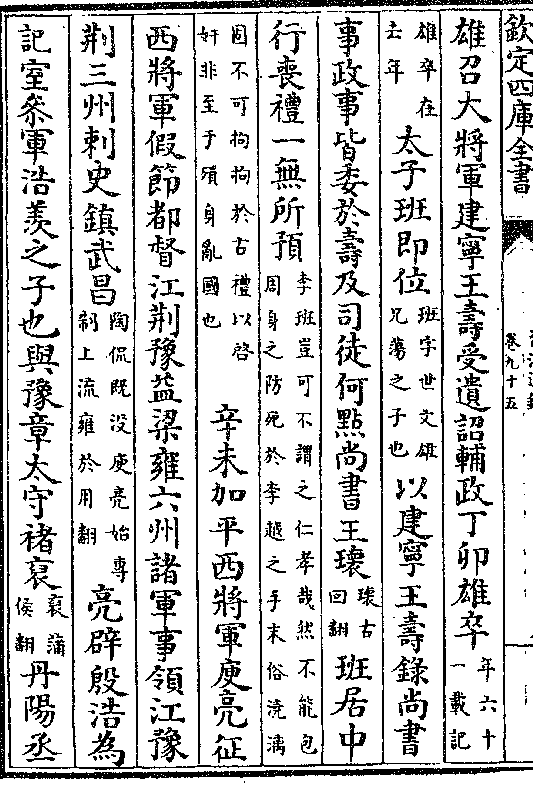 欽定四庫全書
卷九十五
雄召大將軍建寧王壽受遺詔輔政丁卯雄卒年六十一載記
雄卒在去年太子班即位班字世文雄兄蕩之子也以建寧王壽錄尚書
事政事皆委於壽及司徒何點尚書王瓌瓌古回翻班居中
行喪禮一無所預李班豈可不謂之仁孝哉然不能包周身之防死於李越之手末俗澆漓
固不可拘拘於古禮以啓奸非至于殞身亂國也辛未加平西將軍庾亮征
西將軍假節都督江荆豫益梁雍六州諸軍事領江豫
荆三州刺史鎮武昌陶侃既没庾亮始專制上流雍於用翻亮辟殷浩為
記室叅軍浩羨之子也與豫章太守褚裒裒蒲侯翻丹陽丞